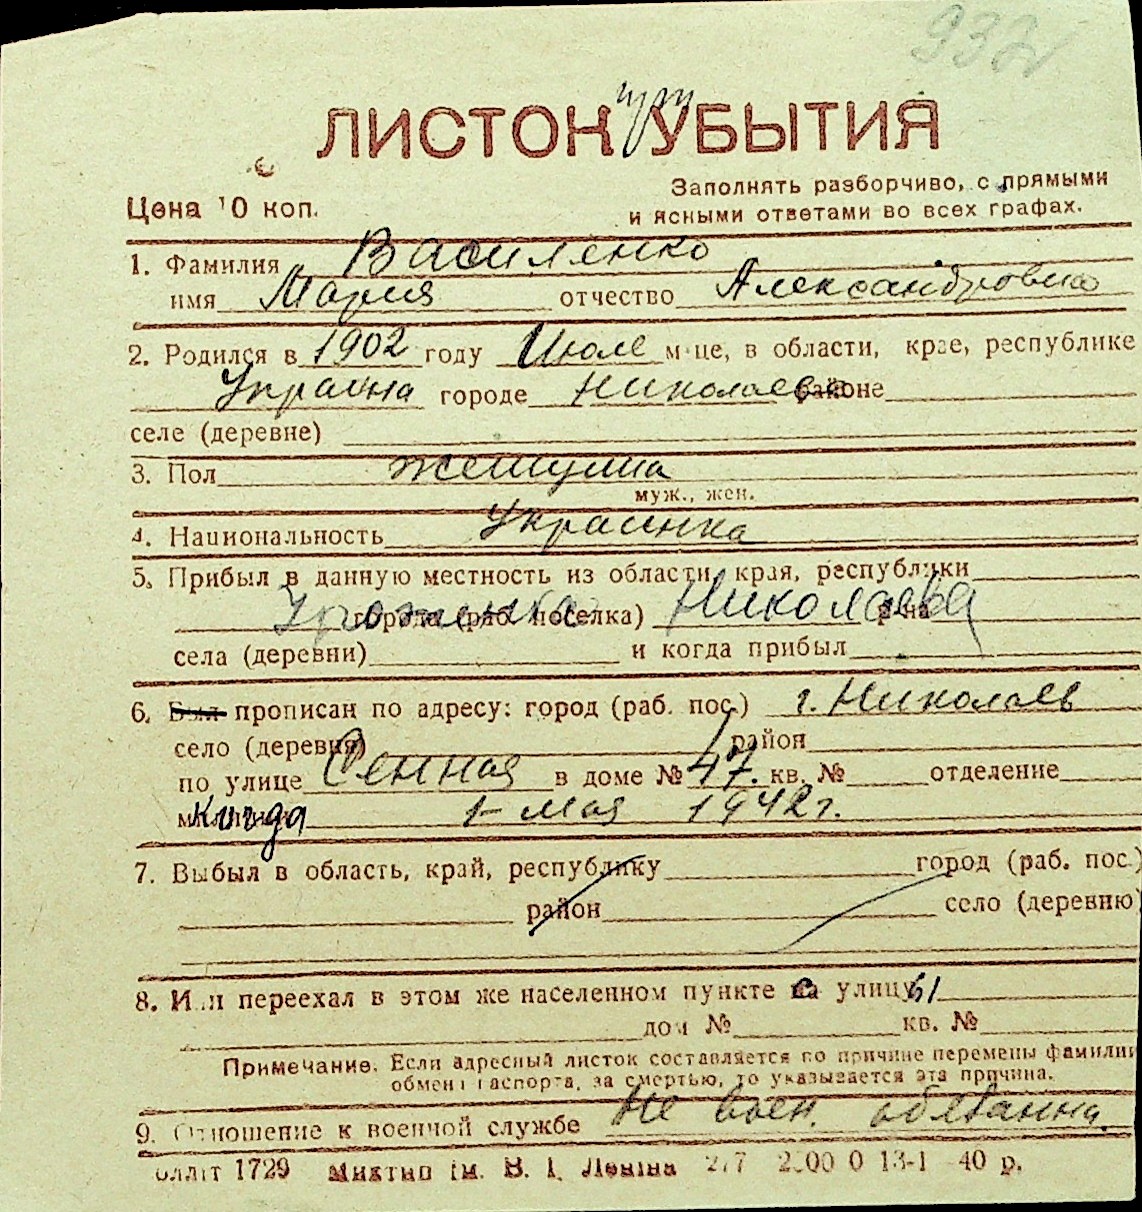 ЛИСТОК при УБЫТИЯ
Цена 10 коп.
Заполнять разборчиво, с прямыми
и ясными ответами во всех графах.
1. Фамилия Василенко
имя Мария отчество Александровна
2. Родился в 1902 году Июле м-це, в области, крае, республике
Украина городе Николаеве районе
селе (деревне)
3. Пол женщина
муж., жен.
4. Национальность Украинка
5. Прибыл в данную местность из области, края, республики
Уроженка города (раб. поселка) Николаева р-на
села (деревни) и когда прибыл
6. Был прописан по адресу: город (раб. пос.) г. Николаев
село (деревня) район
по улице Сенная в доме № 47. кв. № отделение
милиции когда 1 мая 1942 г.
7. Выбыл в область, край, республику город (раб. пос.)
район село (деревню)
8. Или переехал в этом же населенном пункте с улицы
дом № кв. №
Примечание. Если адресный листок составляется по причине перемены фамилии
обмена паспорта, за смертью, то указывается эта причина.
9. Отношение к военной службе Не воен. обязанна.
1729 Миктип ім. В. І. Леніна 2/7 13-1 40 р.